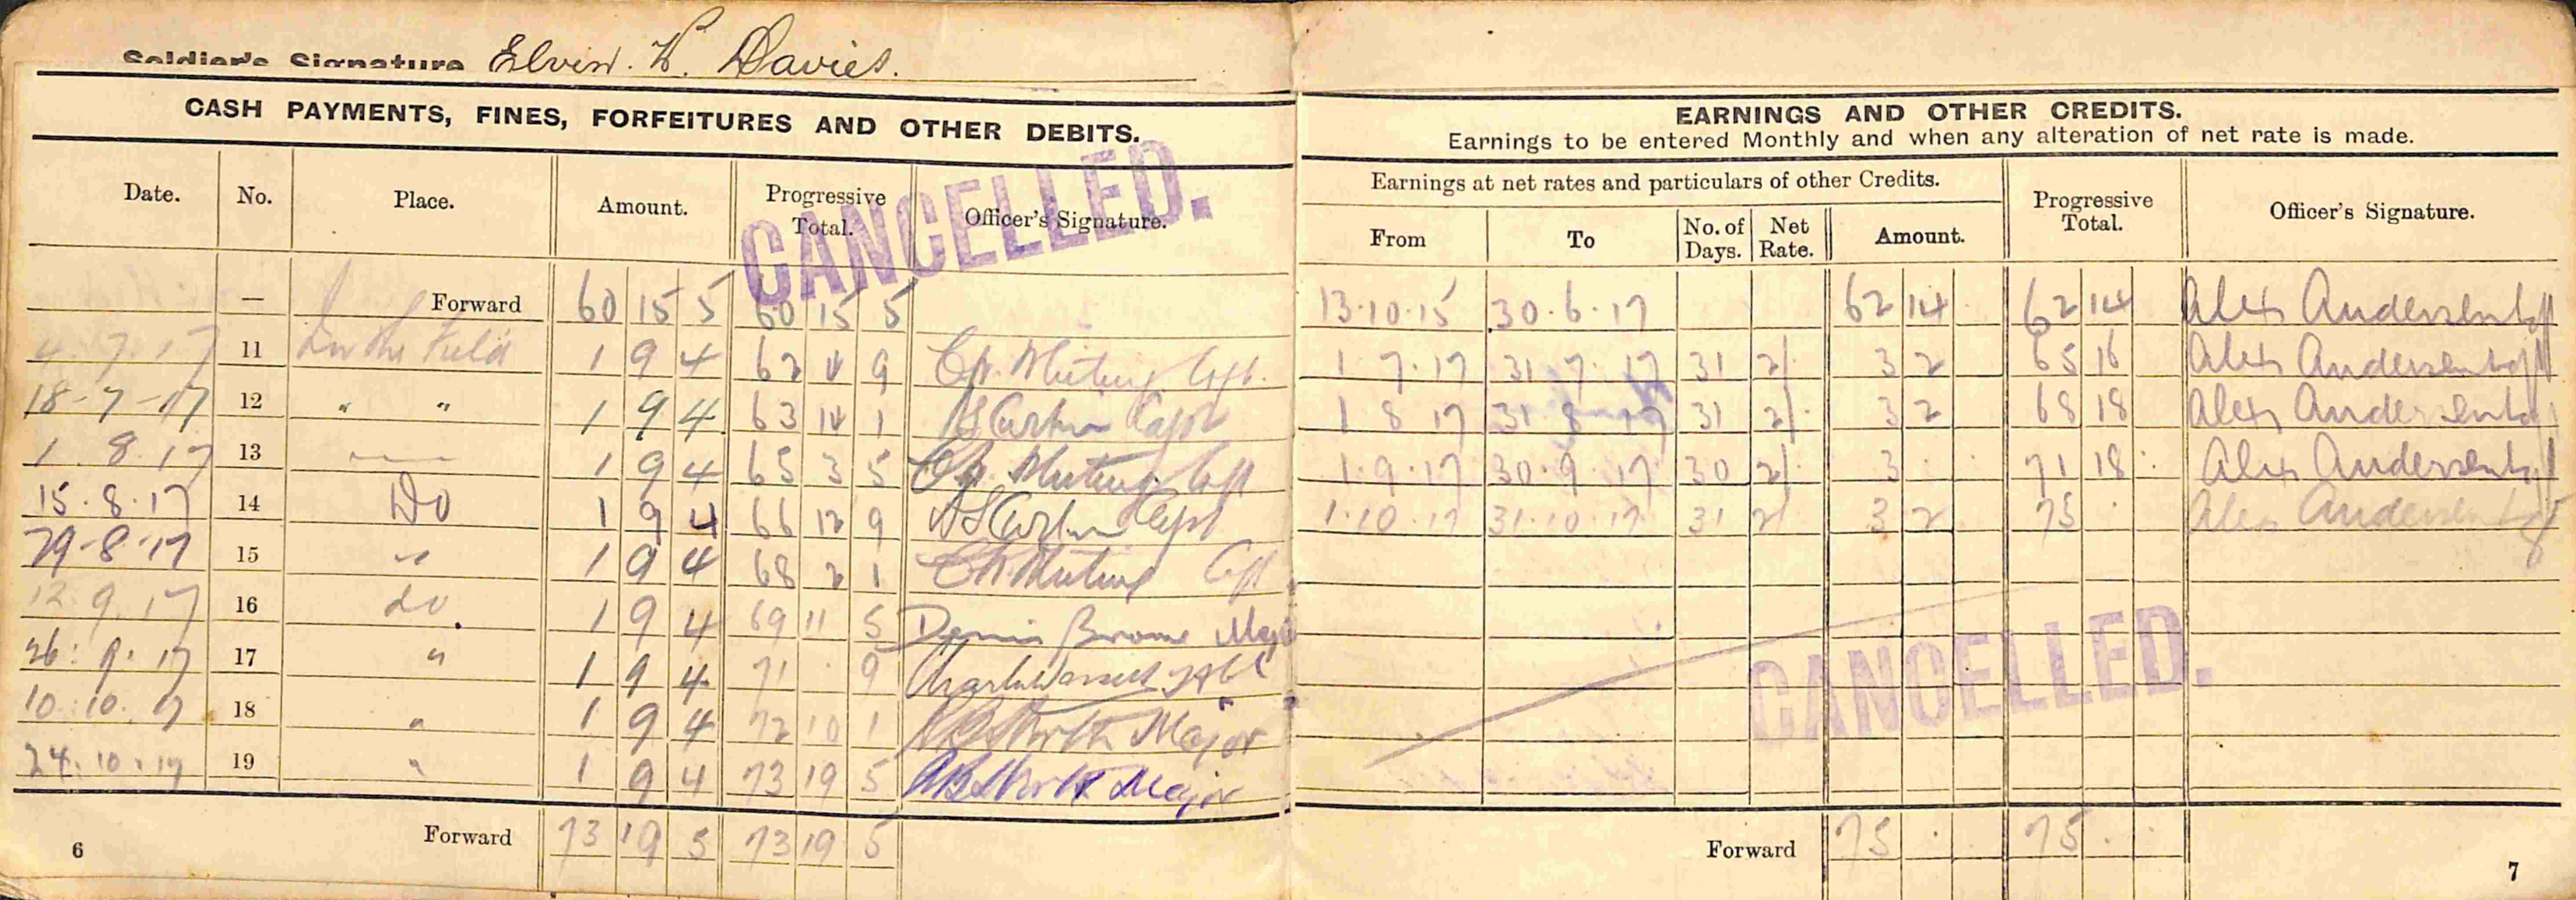 Soldier's Signature Elvin. W. Davies.
CASH PAYMENTS, FINES, FORFEITURES AND OTHER DEBITS.
CANCELLED.
Date. No. Place. Amount. Progressive Total. Officer's Signature.
— Forward 60 15 5 60 15 5
4. 7. 17 11 In the Field 1 9 4 62 4 9
18-7-17 12 " " 1 9 4 63 14 1
1. 8. 17 13 1 9 4 65 3 5
15. 8. 17 14 Do 1 9 4 66 12 9
29-8-17 15 " 1 9 4 68 2 1
12. 9. 17 16 do. 1 9 4 69 11 5
26. 9. 17 17 " 1 9 4 71 . 9
10. 10. 17 18 " 1 9 4 72 10 1 Major
24. 10. 17 19 " 1 9 4 73 19 5 Major
Forward 73 19 5 73 19 5
6
EARNINGS AND OTHER CREDITS.
Earnings to be entered Monthly and when any alteration of net rate is made.
Earnings at net rates and particulars of other Credits. Progressive Total. Officer's Signature.
From To No. of Days. Net Rate. Amount.
13.10.15 30.6.17 62 14 62 14 Alex
1 7.17 31 7. 17 31 2/ 3 2 65 16 Alex
1 8 17 31 8 17 31 2/ 3 2 68 18 Alex
1.9.17 30.9.17 30 2/ 3 . . 71 18 . Alex
1.10.17 31.10.17 31 2/ 3 2 75 . Alex
CANCELLED.
Forward 75 . 75 . .
7